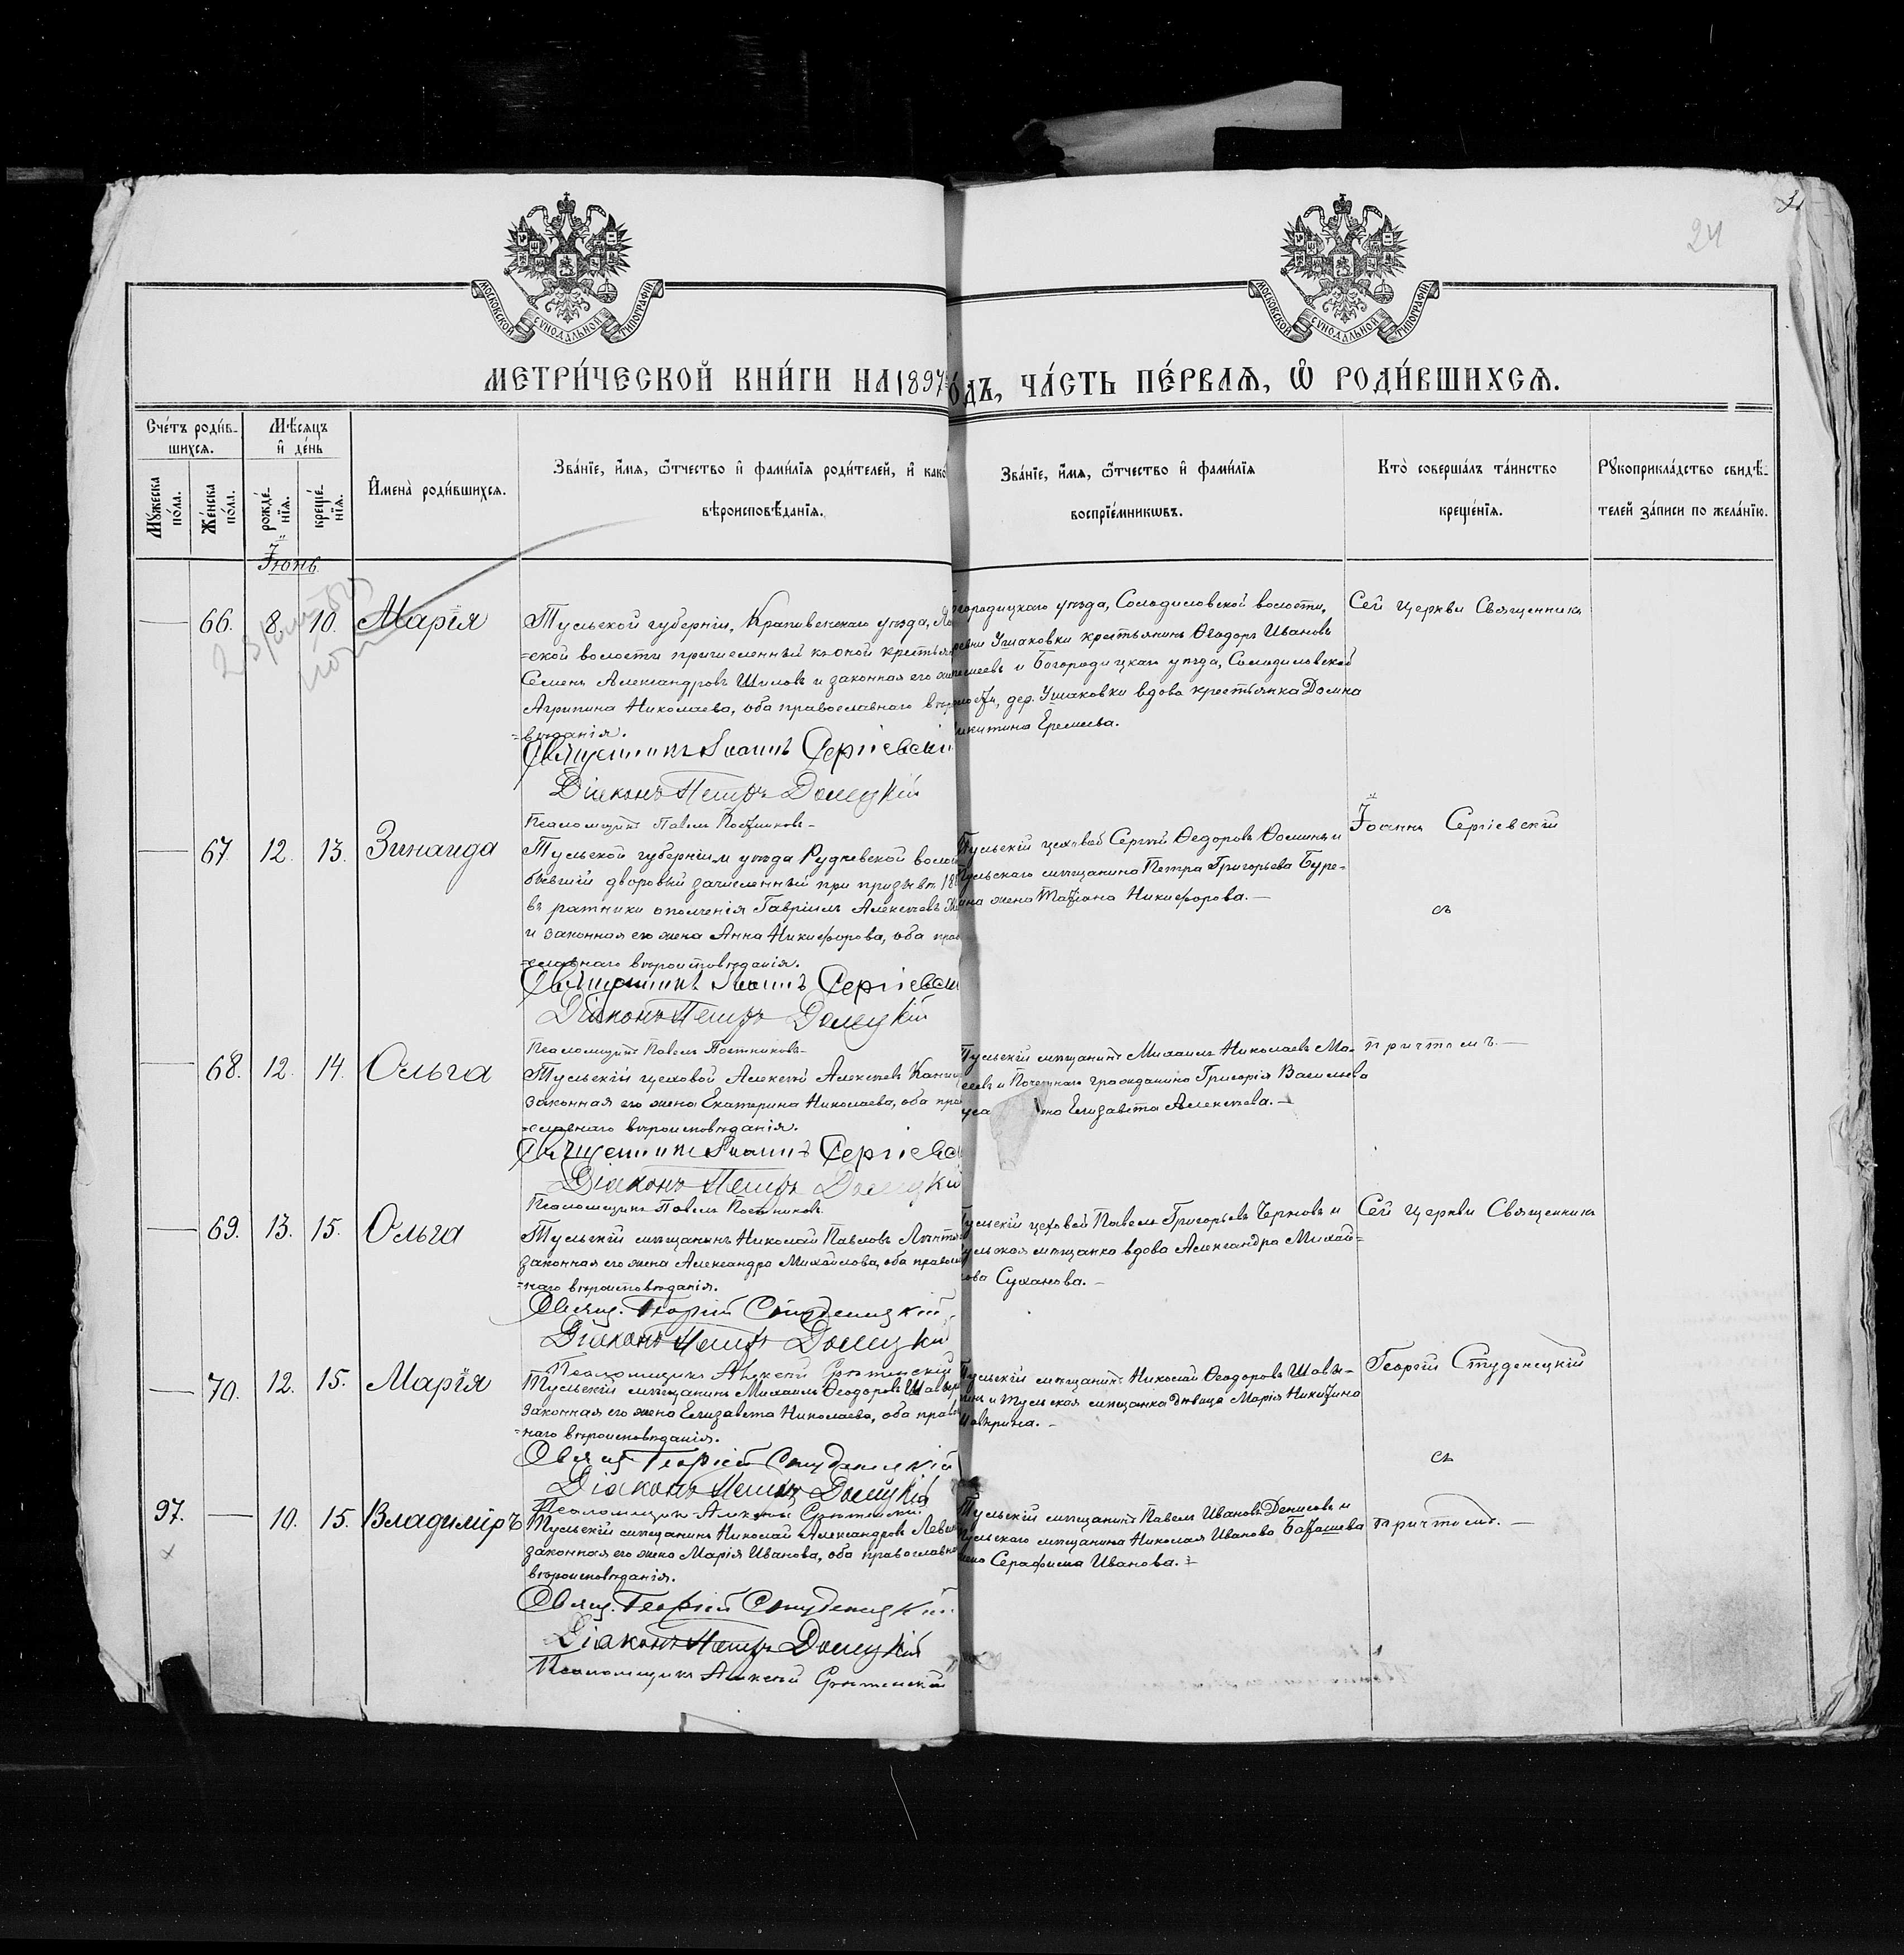 МОСКОВСКОЙ СѴНОДАЛЬНОЙ ТИПОГРАФІИ
МОСКОВСКОЙ СѴНОДАЛЬНОЙ ТИПОГРАФІИ
24
МЕТРИ́ЧЕСКОЙ КНИ́ГИ НА 1897
О́ДЪ, ЧА́СТЬ ПЕ́РВАѦ, Ѿ РОДИ́ВШИХСѦ.
Сче́тъ роди́в-
шихсѧ.
Мꙋ́жеска по́ла.
Же́нска по́ла.
Мѣ́сѧцъ
и҆ де́нь
рожде́-нїѧ.
креще́-нїѧ.
И҆мена̀ роди́вшихсѧ.
Зва́нїе, и҆́мѧ, ѻ҆́тчество и҆ фами́лїѧ роди́телей, и҆ како
вѣроисповѣ́данїѧ.
Зва́нїе, и҆́мѧ, ѻ҆́тчество и҆ фами́лїѧ
воспрїе́мникѡвъ.
Кто̀ соверша́лъ та́инство
креще́нїѧ.
Рꙋкоприкла́дство свидѣ́-
телей за́писи по жела́нїю.
Іюнь
66. 8. 10. Марія
Тульской губерніи, Крапивенскаго уѣзда,
=ской волости причисленный къ оной
Семенъ Александровъ Шиловъ и законная его
Агрипина Николаева, оба православнаго
=вѣданія.
Священникъ Іоаннъ Сергіевскі
Діаконъ Петръ Домецкій
Псаломщикъ Павелъ Постниковъ
огородицкаго уѣзда, Солодиловской волости,
ревни Ушаковки крестьянинъ Ѳеодоръ Ивановъ
и Богородицкаго уѣзда, Солодиловской
дер. Ушаковки вдова крестьянка Домна
икитина Еремеева.
Сей церкви Священникъ
67. 12. 13. Зинаида
Тульской губерніи и уѣзда Рудневской
бывшій дворовый зачисленный при призывѣ
въ ратники ополченія Гавріилъ Алексѣевъ
и законная его жена Анна Никифорова, оба прав
=славнаго вѣроисповѣданія.
Священникъ Іоаннъ Сергіевск
Діаконъ Петръ Домецкій
Псаломщикъ Павелъ Постниковъ
Тульскій цеховой Сергѣй Ѳедоровъ Ѳоминъ и
Тульскаго мѣщанина Петра Григорьева Буре-
ина жена Татіана Никифорова.
Іоаннъ Сергіевскій
съ
68. 12. 14. Ольга
Тульскій цеховой Алексѣй Алексѣевъ
законная его жена Екатерина Николаева, оба пра
=славнаго вѣроисповѣданія.
Священникъ Іоаннъ Сергіевс
Діаконъ Петръ Домецкій
Псаломщикъ Павелъ Постниковъ
Тульскій мѣщанинъ Михаилъ Николаевъ Мо-
и Почетнаго гражданина Григорія Васильева
ена Елизавета Алексѣева.
причтомъ.
69. 13. 15. Ольга
Тульскій мѣщанинъ Николай Павловъ
законная его жена Александра Михайлова, оба правос
=наго вѣроисповѣданія.
Свящ. Георгій Студенецкій
Діаконъ Петръ Домецкій
Псаломщикъ Алексѣй Срѣтенскій
Тульскій цеховой Павелъ Григорьевъ Черновъ и
ульская мѣщанка вдова Александра Михай=
ова Суханова.
Сей церкви Священникъ
70. 12. 15. Марія
Тульскій мѣщанинъ Михаилъ Ѳеодоровъ
законная его жена Елизавета Николаева, оба
=наго вѣроисповѣданія.
Свящ. Георгій Студенецкій
Діаконъ Петръ Домецкій
Псаломщикъ Алексѣй Срѣтенскій
Тульскій мѣщанинъ Николай Ѳеодоровъ
и тульская мѣщанка дѣвица Марія Никитина
Георгій Студенецкій
съ
97. 10. 15. Владиміръ
Тульскій мѣщанинъ Николай Александровъ
законная его жена Марія Иванова, оба православна
вѣроисповѣданія.
Свящ. Георгій Студенецкій
Діаконъ Петръ Домецкій
Псаломщикъ Алексѣй Срѣтенскій
Тульскій мѣщанинъ Павелъ Ивановъ Денисовъ и
Тульскаго мѣщанина Николая Иванова Баташева
жена Серафима Иванова.
причтомъ.